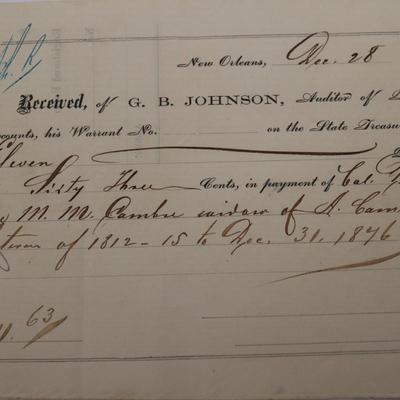 New Orleans, Dec. 28
Received, of G. B. JOHNSON, Auditor of
ccounts, his Warrant No. on the State Treasu
Eleven
Sixty Three Cents, in payment of Bal.
M. M. Cambre widow of A. Cam
teran of 1812-15 to Dec. 31, 1876
11. 63